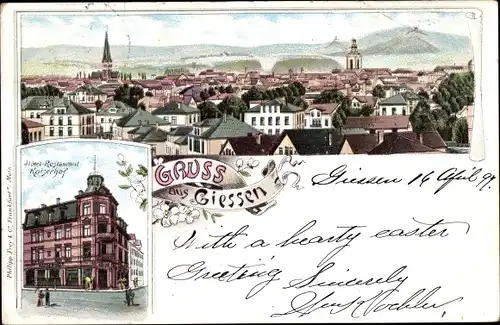 Hotel-Restaurant
Kaiserhof
GRUSS
aus Giessen
Giessen 16 April 97
With a hearty easter
Greeting Sincerely
Philipp Frey & Co, Frankfurt a. Main.